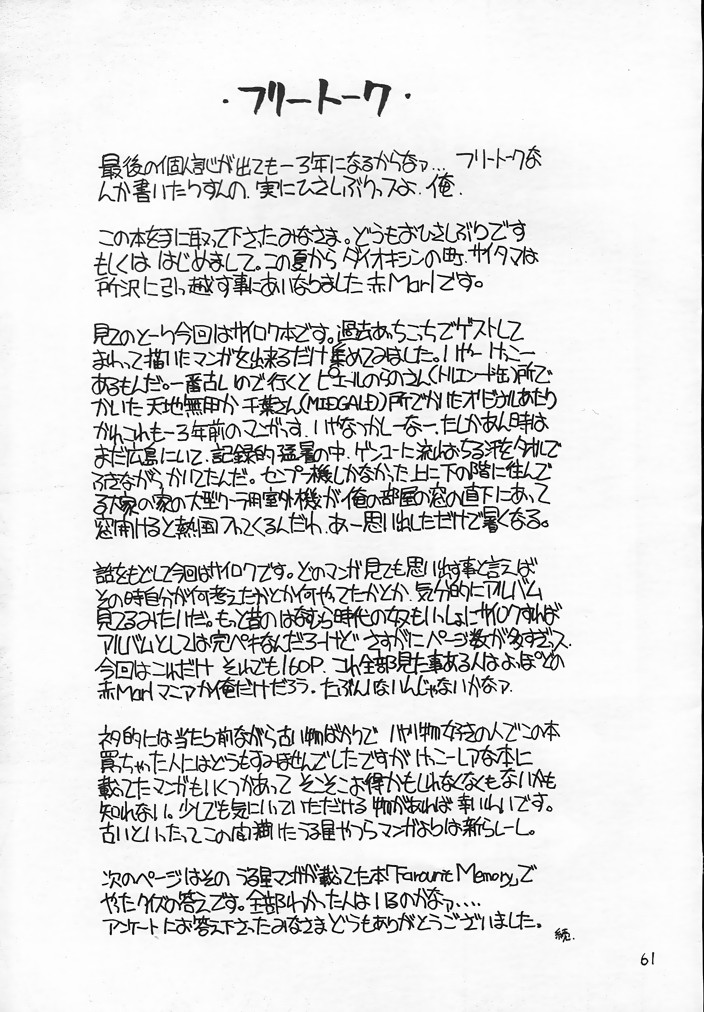 ・フリートーク・
最後の個人誌が出てもー3年になるからなァ… フリートークな
んか書いたりすんの、実にひさしぶりっスよ、俺.
この本を手に取って下さったみなさま。どうもおひさしぶりです
もしくは はじめまして。この夏から ダイオキシンの町、サイタマは
所沢に引っ越す事にあいなりました 赤Marlです。
見てのとーり今回はサイロク本です。過去あっちこっちでゲストして
まわって描いたマンガを出来るだけ集めてみました。いやーけっこー
あるもんだ。一番古いので行くと ピエールのらのさん(トルエンド缶)所で
かいた 天地無用か 千葉さん(MIDGALD)所でかいたオリジナルあたり
かいこれも一3年前のマンガっす. いやなつかしーなー. たしかあん時は
まだ広島にいて、記録的猛暑の中、ゲンコーに流れおちる汗をタオルで
ふきながらかいてたんだ。センプー機しかなかった上に下の階に住んで
る大家の家の大型クーラー用室外機が俺の部屋の窓の直下にあって
窓開けると熱風入ってくるんだわ. あー思い出しただけで暑くなる。
話をもどして今回はサイロクです。どのマンガ見ても思い出す事と言えば
その時自分が何考えたかとか何やってたかとか. 気分的にアルバム
見てるみたいだ。もっと昔のはなむら時代の奴もいっしょにサイロクすれば
アルバムとしては完ペキなんだろーけど さすがにページ数が多すぎっス
今回はこれだけ それでも160P. これ全部見た事ある人はよっぽどの
赤Marlマニアか俺だけだろう. たぶんいないんじゃないかなァ.
ネタ的には当たり前ながら古い物ばかりで ハヤリ物好きの人でこの本
買っちゃった人にはどうもすみませんでしたですが けっこーレアな本に
載ってたマンガもいくつかあって そこそこお得かもしれなくなくもないかも
知れない。少しでも気にいっていただける物があれば 幸いです。
古いといったって この間描いたうる星やつらマンガよりは新らしーし。
次のページはその うる星マンガが載ってた本「Favourite Memory」で
やったクイズの答えです。全部わかった人はいるのかなァ....
アンケートにお答え下さったみなさま どうもありがとうございました。
続.
61